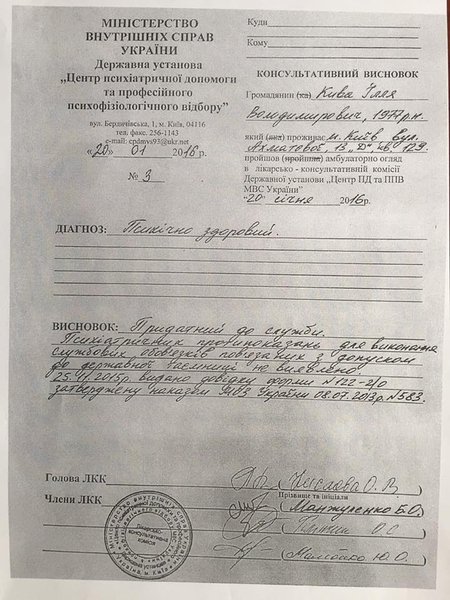 МІНІСТЕРСТВО
ВНУТРІШНІХ СПРАВ
УКРАЇНИ
Державна установа
„Центр психіатричної допомоги
та професійного
психофізіологічного відбору”
вул. Бердичівська, 1, м. Київ, 04116
тел, факс. 256-1143
e-mail: cpdmvs93@ukr.net
«20» 01 2016 р.
№ 3
Куди
Кому
КОНСУЛЬТАТИВНИЙ ВИСНОВОК
Громадянин (ка) Кива Ілля
Володимирович, 1977 р.н.
який (яка) проживає м. Київ вул.
Ахматової 13 "Д", кв. 129
пройшов (пройшла) амбулаторно огляд
в лікарсько - консультативній комісії
Державної установи „Центр ПД та ППВ
МВС України”
"20" січня 2016р.
ДІАГНОЗ: Психічно здоровий.
ВИСНОВОК: Придатний до служби.
Психіатричних протипоказань для виконання
службових обов'язків пов'язаних з допуском
до державної таємниці не виявлено
25.11.2015р. видано довідку форми №122-2/о
затверджену наказом МОЗ України 08.07.2013р. №583.
Голова ЛКК
О. В
Члени ЛКК
Прізвище та ініціали
Манжуленко Б.О.
О.С.
Ю.О.
Лікарсько-
консультативна
комісія